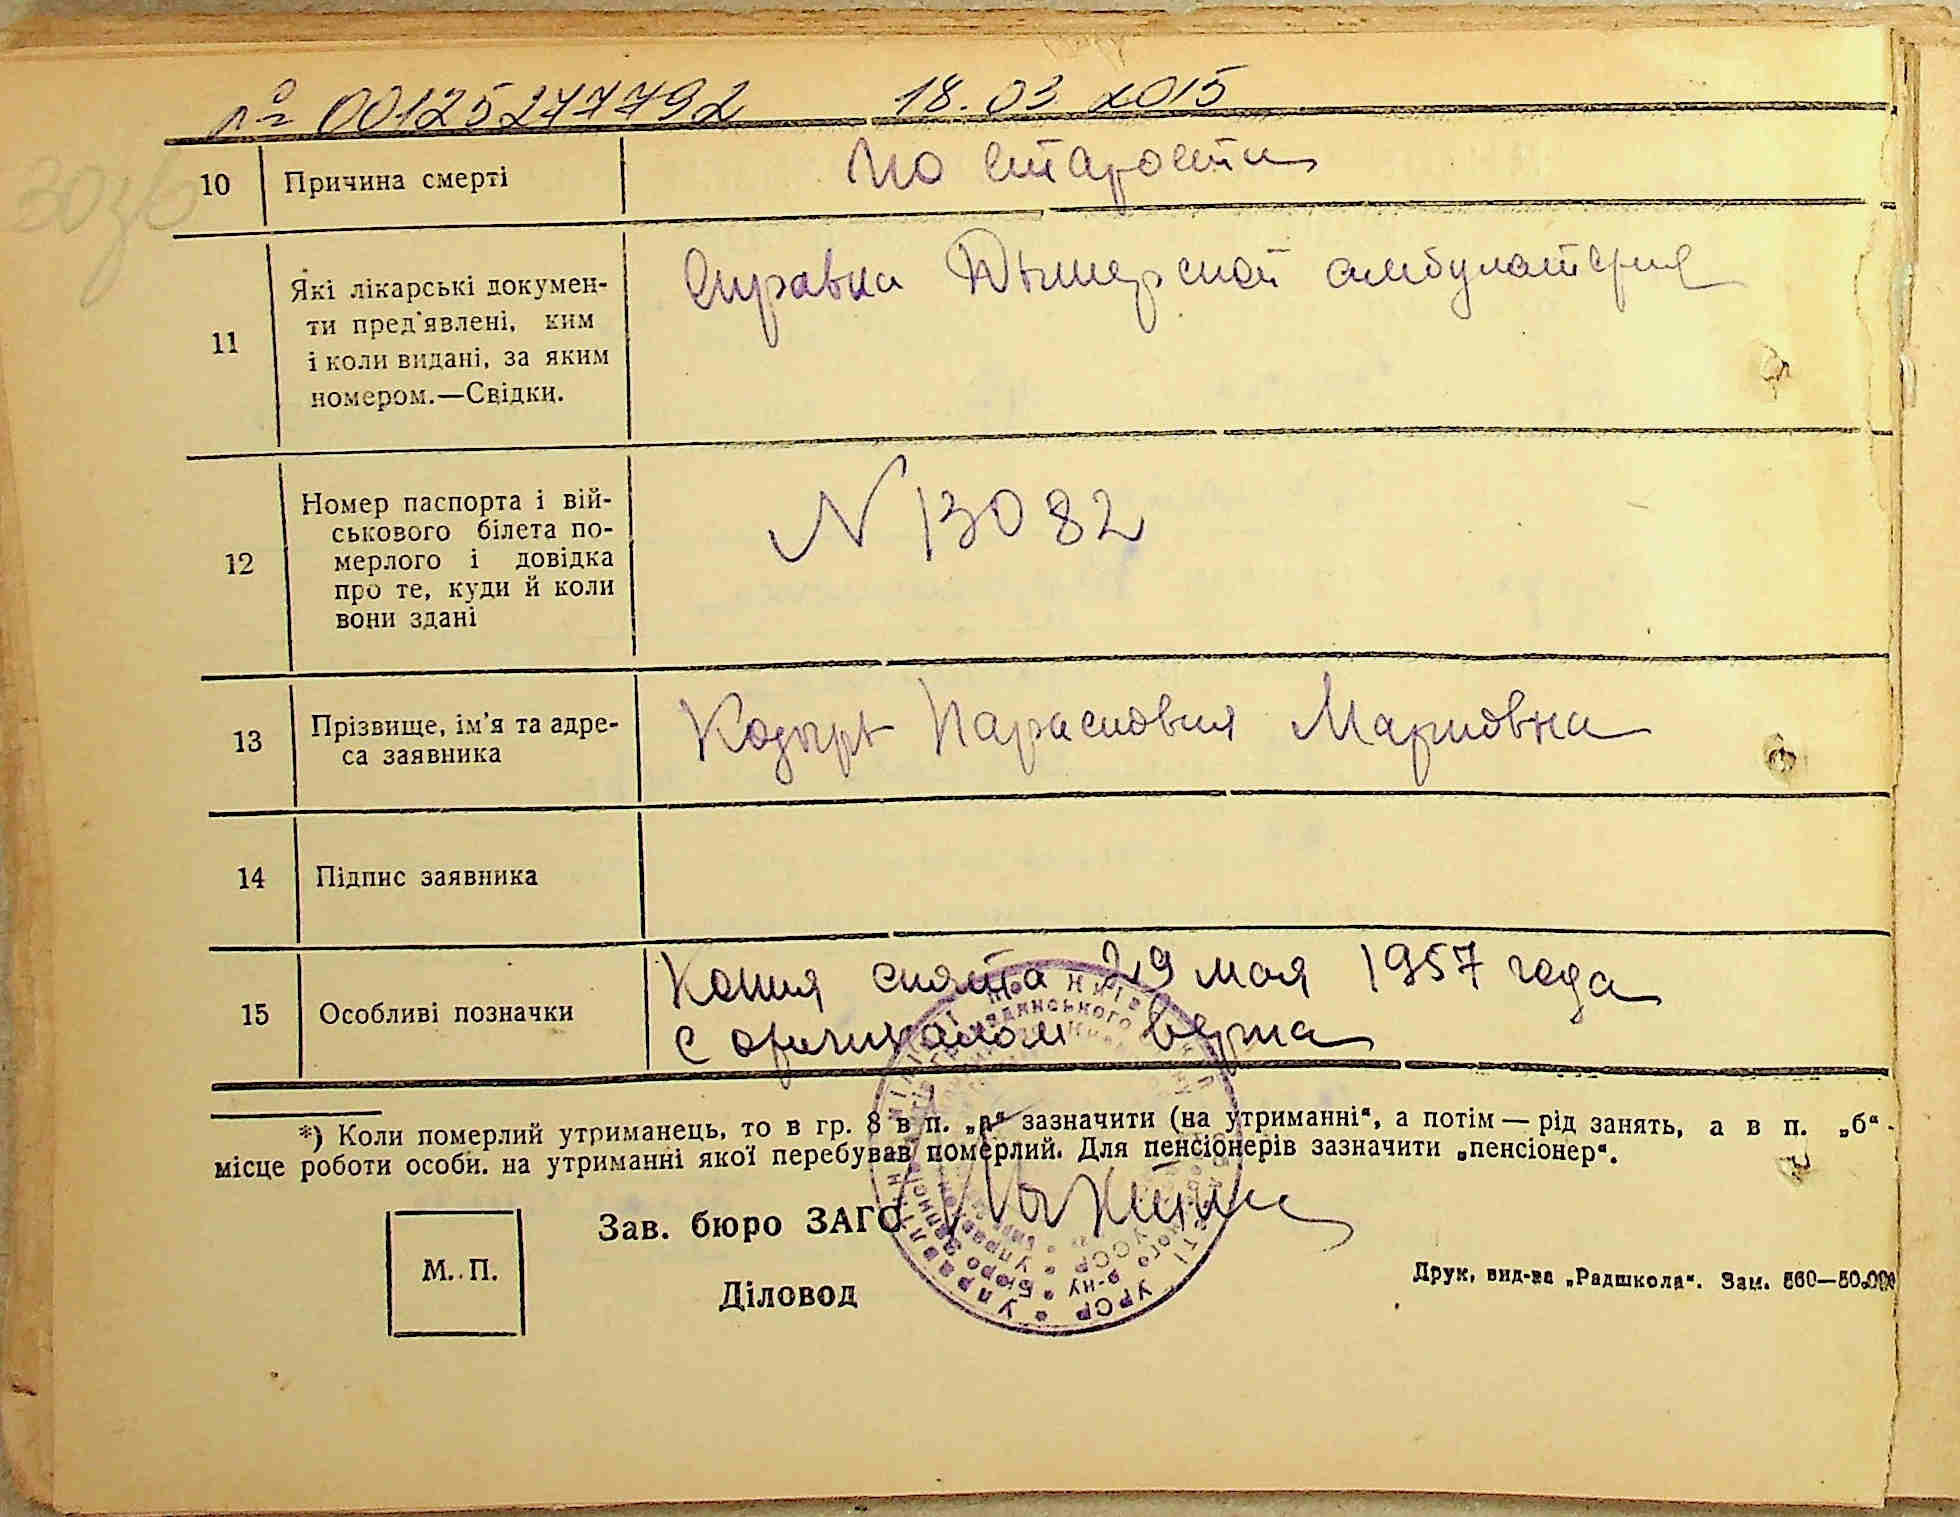 № 00125277792 18.03.2015
10 Причина смерті По старости
11 Які лікарські докумен-
ти пред'явлені, ким
і коли видані, за яким
номером.—Свідки.
Справка Дымерской амбулатория
12 Номер паспорта і вій-
ськового білета по-
мерлого і довідка
про те, куди й коли
вони здані
N 13082
13 Прізвище, ім'я та адре-
са заявника
Козырь Парасковия Марковна
14 Підпис заявника
15 Особливі позначки
Копия снята 29 мая 1957 года
с оригиналом верна
*) Коли померлий утриманець, то в гр. 8 в п. „а“ зазначити (на утриманні“, а потім — рід занять, а в п. „б“ -
місце роботи особи. на утриманні якої перебував померлий. Для пенсіонерів зазначити „пенсіонер“.
Зав. бюро ЗАГС
М. П.
Діловод
Друк, вид-ва „Радшкола“. Зам. 560—50.000